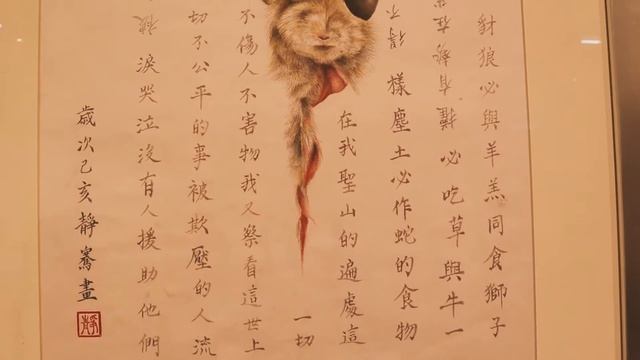 豺狼必與羊羔同食獅子
必吃草與牛一
樣塵土必作蛇的食物
在我聖山的遍處這
一切
不傷人不害物我又察看這世上
切不公平的事被欺壓的人流
淚哭泣沒有人援助他們
歲次己亥靜畫
靜